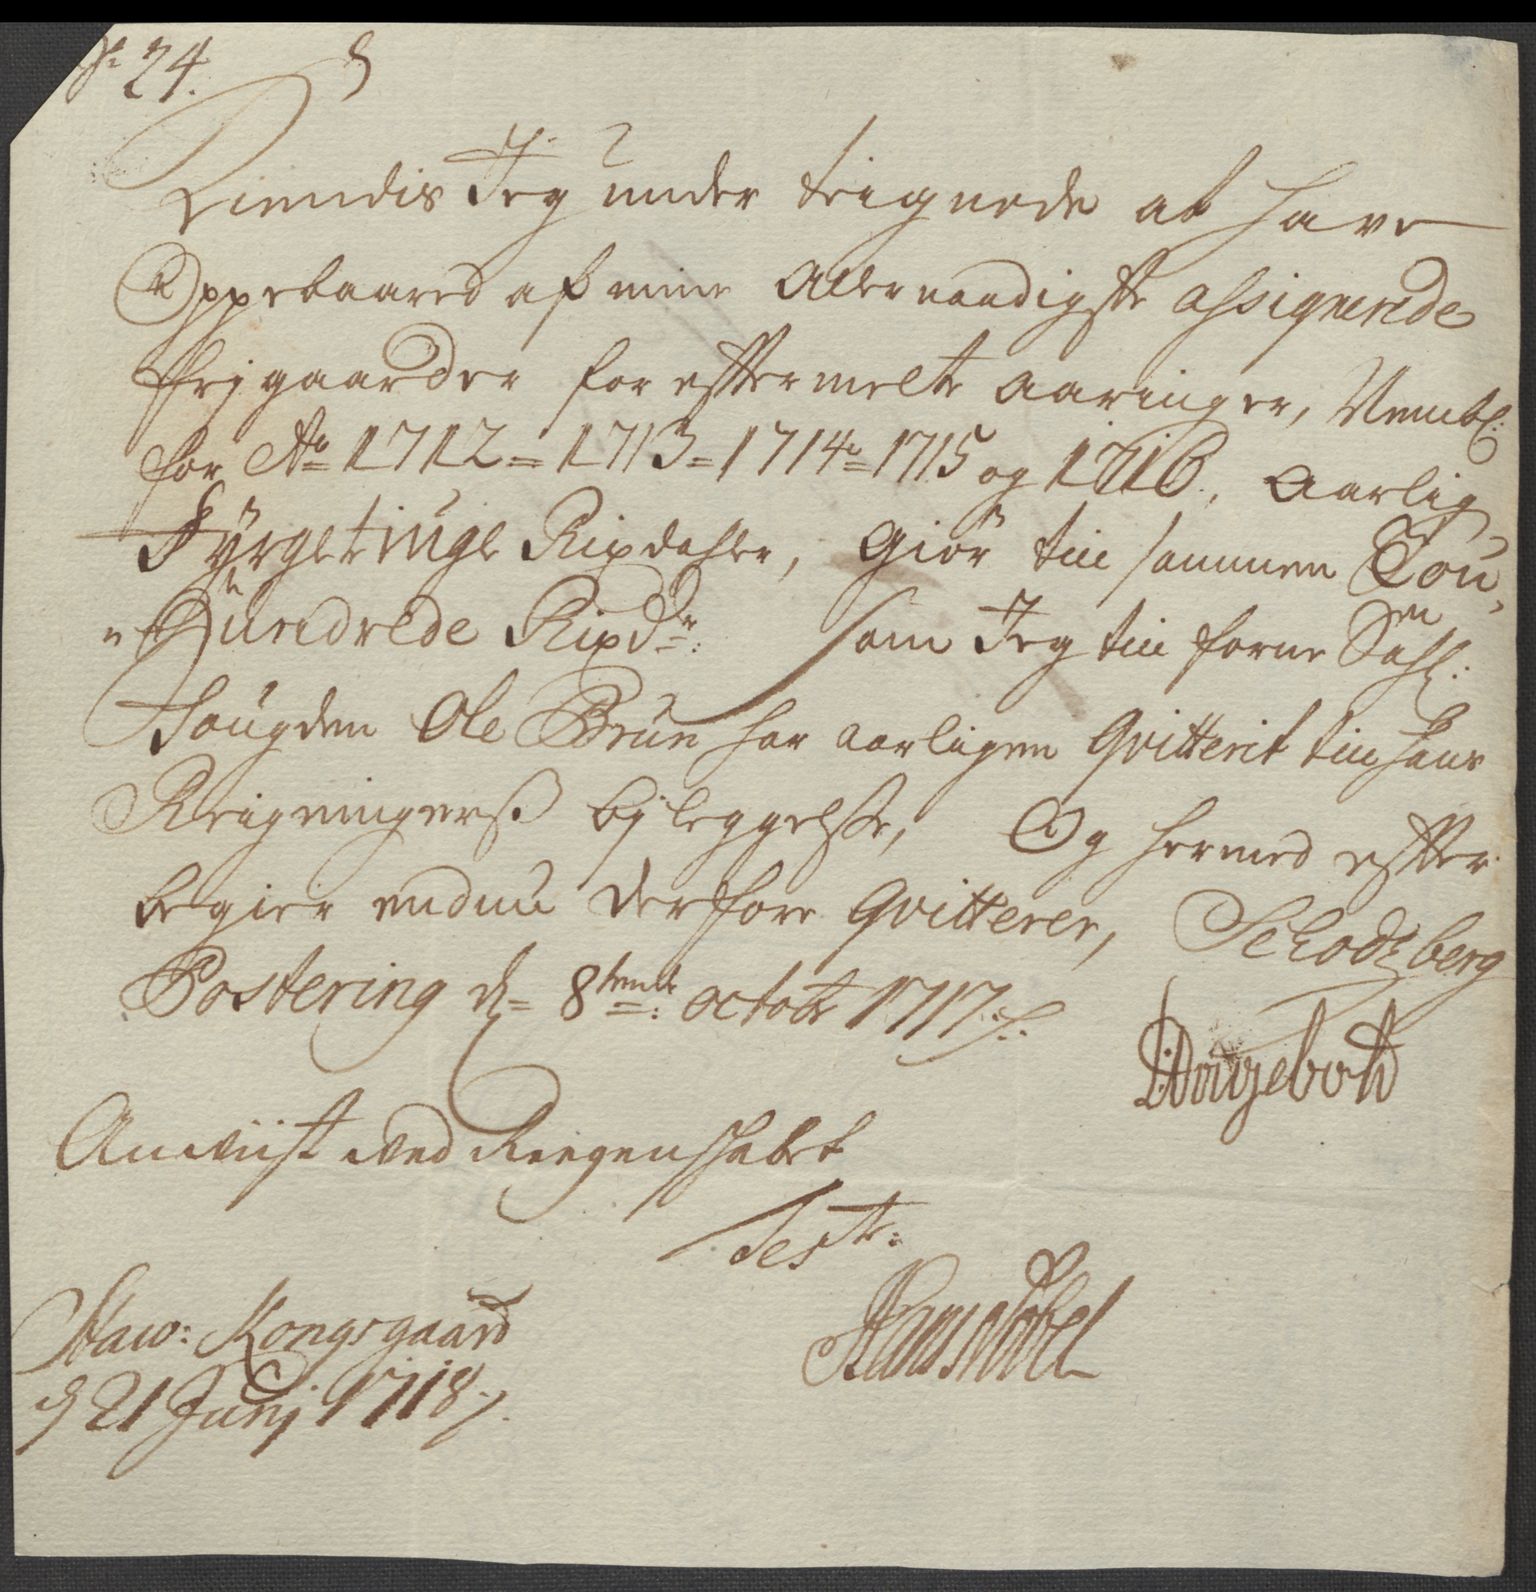 No 24.
Kiendis Jeg under teignede at have
Oppebaared af mine Allernaadigste assignerede
frejgaarder for effter melte aaringer, Nembl:
for Ao 1712 = 1713 = 1714 = 1715 og 1716, Aarlig
Fyrgetiuge Rixdahler, Giör till sammen Tou
Hundrede Rixdr: som Jeg till forne Sahl:
Fougden Ole Brun har aarligen Qvitterit till hans
Reigningers bjleggelsse, Og hermed effter
begier endnu derfore Qvitterer, Schodtzberg
Postering d 8tende octobr 1717
Anviist ved Reigenskabet
Test:
Staw: Kongsgaard
d 21 Junj 1718
Hans Nobel